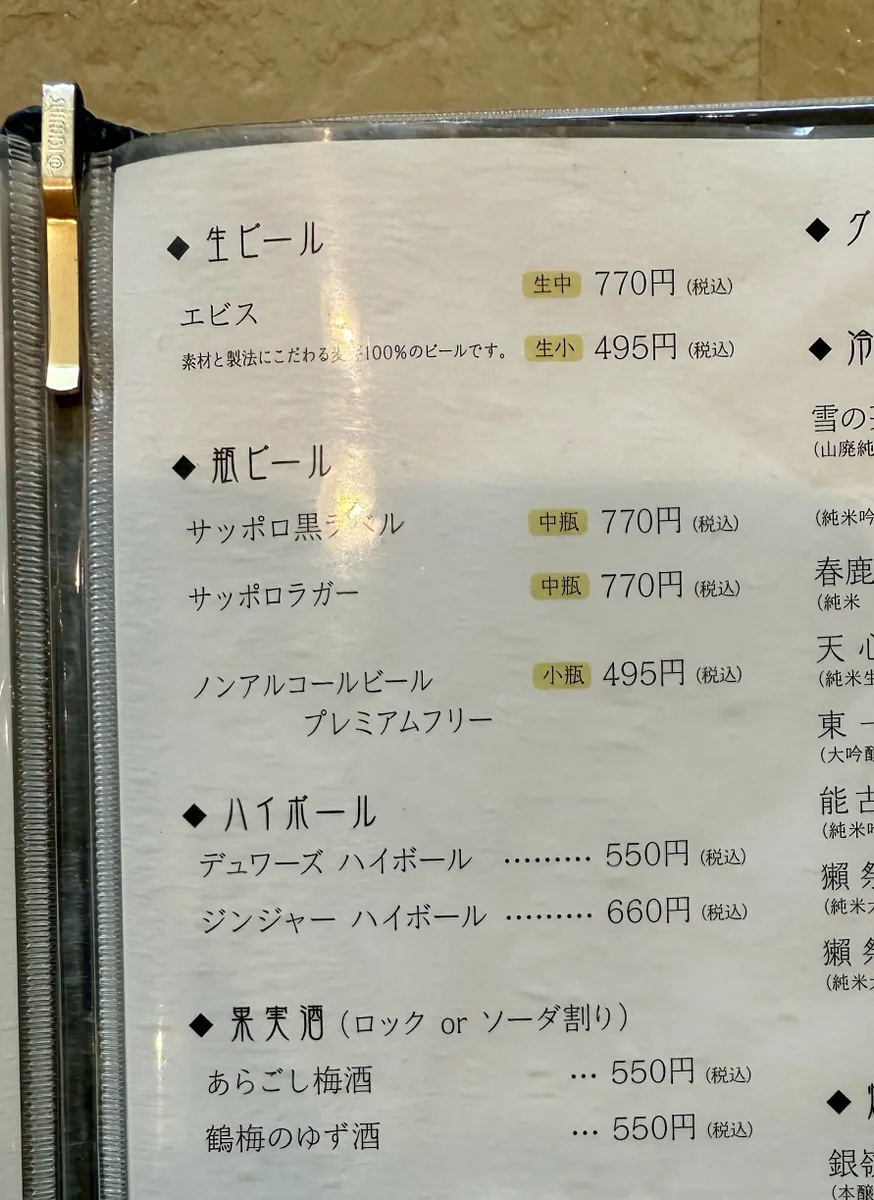 ◆ 生ビール
エビス
生中 770円 (税込)
素材と製法にこだわる麦芽100%のビールです。
生小 495円 (税込)
◆ 瓶ビール
サッポロ黒ラベル 中瓶 770円 (税込)
サッポロラガー 中瓶 770円 (税込)
ノンアルコールビール 小瓶 495円 (税込)
プレミアムフリー
◆ ハイボール
デュワーズ ハイボール ……… 550円 (税込)
ジンジャー ハイボール ……… 660円 (税込)
◆ 果実酒 (ロック or ソーダ割り)
あらごし梅酒 … 550円 (税込)
鶴梅のゆず酒 … 550円 (税込)
◆ グ
◆ 冷
雪の
(山廃純
(純米吟
春鹿
(純米
天 心
(純米生
東 一
(大吟醸
能古
(純米吟
獺 祭
(純米大
獺 祭
(純米大
◆
銀嶺
(本醸